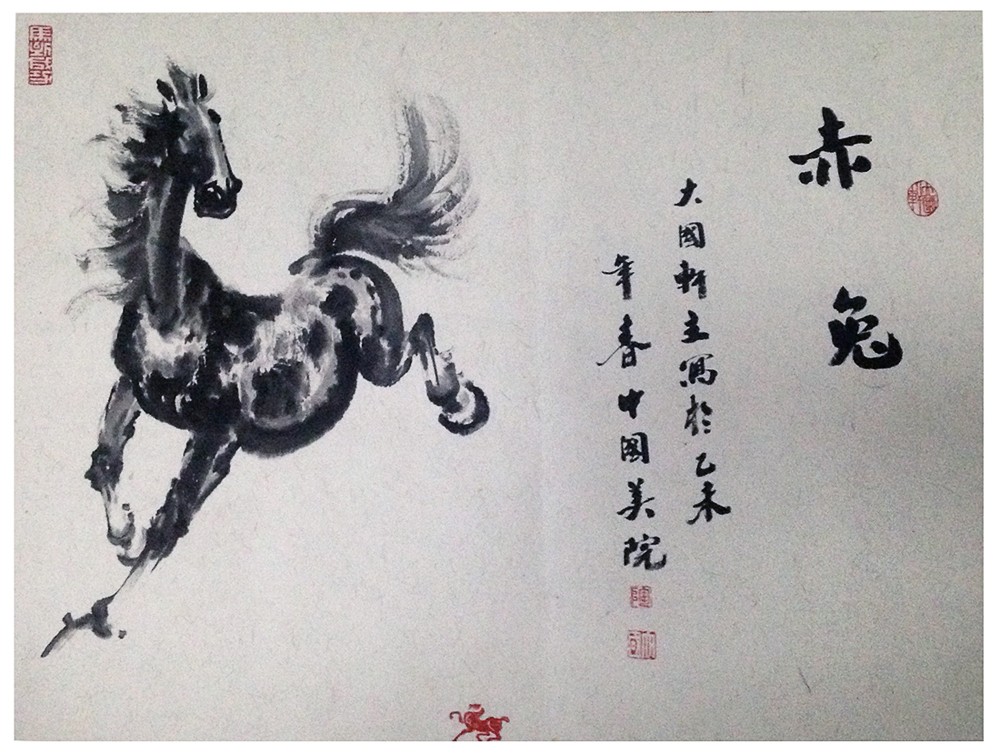 赤兔
大國軒主寫於乙未
年春中國美院
大國軒